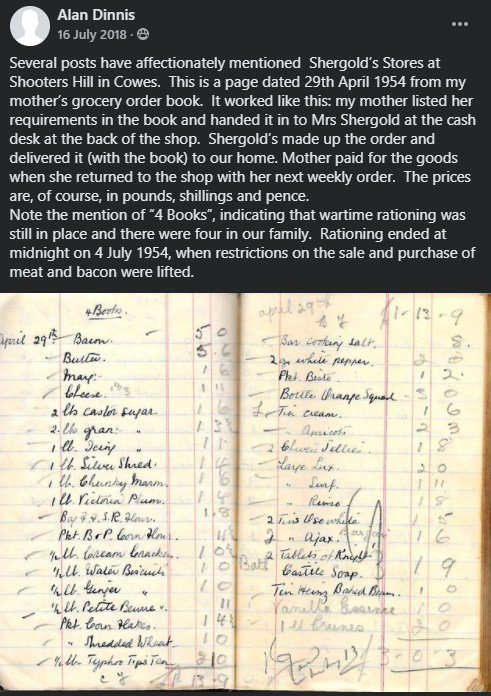 Alan Dinnis
16 July 2018 ·
Several posts have affectionately mentioned Shergold's Stores at
Shooters Hill in Cowes. This is a page dated 29th April 1954 from my
mother's grocery order book. It worked like this: my mother listed her
requirements in the book and handed it in to Mrs Shergold at the cash
desk at the back of the shop. Shergold's made up the order and
delivered it (with the book) to our home. Mother paid for the goods
when she returned to the shop with her next weekly order. The prices
are, of course, in pounds, shillings and pence.
Note the mention of "4 Books", indicating that wartime rationing was
still in place and there were four in our family. Rationing ended at
midnight on 4 July 1954, when restrictions on the sale and purchase of
meat and bacon were lifted.
4 Books.
April 29th Bacon. 5 0
Butter. 5 6
Marg:- 1 6
Cheese. 1 11
2 lbs castor sugar. 1 6
2 lbs gran: " 1 3½
1 lb. Icing " 1
1 lb. Silver Shred. 1
1 lb. Chunky Marm. 1
1 lb. Victoria Plum. 1
Bag S.R. Flour. 1.8
Pkt. B+P. Corn Flour. 11½
½ lb. Cream Crackers. 1 0½
½ lb. Water Biscuits 1 0
½ lb. Ginger " 1 0
½ lb. Petite Beurre ". 11
Pkt. Corn Flakes. 1 4½
" Shredded Wheat. 1 0
½ lb. Typhoo Tips Tea 2 0
c f 1 13 9
april 29th
b f £1-13-9
Bar cooking salt. 8.
2 oz white pepper. 2 0
Pkt. Bisto. 1 2.
Bottle Orange Squash 3 0
Tin cream. 1 6
" Apricots. 2 3
2 Chivers Jellies. 1 8
Large Lux. 2 0
" Surf. 1 11
" Rinso 1 8
2 Tins 1 5
2 " Ajax. 1 6
2 Tablets of Knights
Bath Castile Soap. 1 9
Tin Heinz Baked Beans. 1 0
Vanilla Essence 1 0
1 lb Prunes 2 0
3-0-3